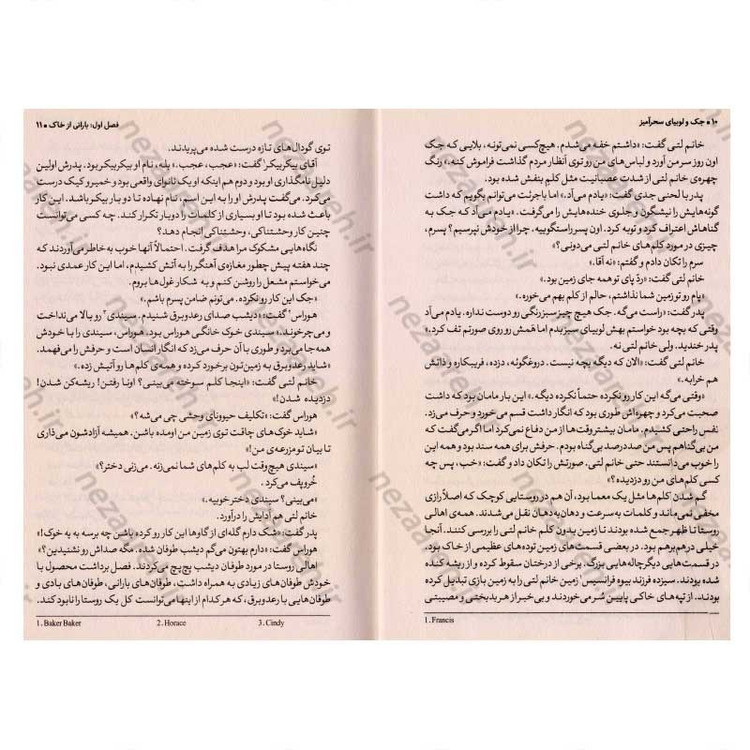 ۱۰ • جک و لوبیای سحرآمیز
خانم لتی گفت: «داشتم خفه می‌شدم. هیچ‌کسی نمی‌تونه، بلایی که جک
اون روز سرمن آورد و لباس‌های من رو توی انظار مردم گذاشت فراموش کنه.» رنگ
چهره‌ی خانم لتی از شدت عصبانیت مثل کلم بنفش شده بود.
پدر با لحنی جدی گفت: «یادم می‌آد.» اما با جرئت می‌توانم بگویم که داشت
گونه‌هایش را نیشگون و جلوی خنده‌هایش را می‌گرفت. «یادم می‌آد که جک به
گناهاش اعتراف کرد و توبه کرد. اون پسر راستگوییه. چرا از خودش نپرسیم؟ پسرم،
چیزی در مورد کلم‌های خانم لتی می‌دونی؟»
سرم را تکان دادم و گفتم: «نه آقا.»
خانم لتی گفت: «ردّ پای تو همه جای زمین بود.»
«پام رو تو زمین شما نذاشتم، حالم از کلم بهم می‌خوره.»
پدر گفت: «راست می‌گه. جک هیچ چیز سبزرنگی رو دوست نداره. یادم می‌آد
وقتی که بچه بود خواستم بهش لوبیای سبز بدم اما همش رو روی صورتم تف کرد.»
پدر خندید. ولی خانم لتی نه.
خانم لتی گفت: «الان که دیگه بچه نیست. دروغگوئه، دزده، فریبکاره و ذاتش
هم خرابه.»
«وقتی می‌گه این کار رو نکرده حتماً نکرده دیگه.» این بار مامان بود که داشت
صحبت می‌کرد و چهره‌اش طوری بود که انگار داشت قسم می‌خورد و حرف می‌زد.
نفس راحتی کشیدم. مامان بیشتر وقت‌ها از من دفاع نمی‌کرد اما اگر می‌گفت که
من بی‌گناهم پس من صددرصد بی‌گناه بودم. حرفش برای همه سند بود و همه این
را خوب می‌دانستند حتی خانم لتی. صورتش را تکان داد و گفت: «خب، پس چه
کسی کلم‌های من رو دزدیده؟»
گم شدن کلم‌ها مثل یک معما بود، آن هم در روستایی کوچک که اصلاً رازی
مخفی نمی‌ماند و کلمات به سرعت و دهان به دهان نقل می‌شدند. همه‌ی اهالی
روستا تا ظهر جمع شده بودند تا زمین بدون کلم خانم لتی را بررسی کنند. آنجا
خیلی درهم برهم بود. در بعضی قسمت‌های زمین توده‌های عظیمی از خاک بود،
در قسمت‌هایی دیگر چاله‌هایی بزرگ. برخی از درختان سقوط کرده و از ریشه کنده
شده بودند. سیزده فرزند بیوه فرانسیس۱ زمین خانم لتی را به زمین بازی تبدیل کرده
بودند. از تپه‌های خاکی پایین سُر می‌خوردند و بی‌خبر از هر بدبختی و مصیبتی
1. Francis
فصل اول: بارانی از خاک • ۱۱
توی گودال‌های تازه درست شده می‌پریدند.
آقای بیکربیکر۱ گفت: «عجب، عجب.» بله، نام او بیکربیکر بود. پدرش اولین
دلیل نامگذاری او بود و دوم هم اینکه او یک نانوای واقعی بود و خمیر و کیک درست
می‌کرد. می‌گفت پدرش او را به این اسم، نام نهاده تا دو بار یادش باشد. این کار
باعث شده بود تا او بسیاری از کلمات را دوبار تکرار کند. چه کسی می‌توانست
چنین کار وحشتناکی، وحشتناکی انجام دهد؟
نگاه‌هایی مشکوک مرا هدف گرفت. احتمالاً آنها خوب به خاطر می‌آوردند که
چند هفته پیش چطور مغازه‌ی آهنگر را به آتش کشیدم، اما این کار عمدی نبود.
می‌خواستم مشعل را روشن کنم و به شکار غول‌ها بروم.
«جک این کار رو نکرده. می‌تونم ضامن پسرم باشم.»
هوراس۲ گفت: «دیشب صدای رعدوبرق شنیدم. سیندی۳ رو بالا می‌نداخت
و می‌چرخوند.» سیندی خوک خانگی هوراس بود. هوراس، سیندی را با خودش
همه‌جا می‌برد و طوری با آن حرف می‌زد که انگار انسان است و حرفش را می‌فهمد.
«شاید رعدوبرق به زمین‌تون برخورد کرده و همه‌ی کلم‌ها رو آتیش زده.»
خانم لتی گفت: «اینجا کلم سوخته می‌بینی؟ اونا رفتن! ریشه‌کن شدن!
دزدیده شدن!»
هوراس گفت: «تکلیف حیوونای وحشی چی می‌شه؟»
«شاید خوک‌های چاقت توی زمین من اومده باشن. همیشه آزادشون می‌ذاری
تا بیان تو مزرعه‌ی من!»
«سیندی هیچ‌وقت لب به کلم‌های شما نمی‌زنه. می‌زنی دختر؟»
خُروپف می‌کرد.
«می‌بینی؟ سیندی دختر خوبیه.»
خانم لتی هم ادایش را درآورد.
پدر گفت: «شک دارم گله‌ای از گاوها این کار رو کرده باشن چه برسه به یه خوک!»
هوراس گفت: «دارم بهتون می‌گم دیشب طوفان شده. مگه صداش رو نشنیدین؟»
اهالی روستا در مورد طوفان دیشب پچ‌پچ می‌کردند. فصل برداشت محصول با
خودش طوفان‌های زیادی به همراه داشت، طوفان‌های بارانی، طوفان‌های بادی و
طوفان‌هایی با رعدوبرق، که هرکدام از اینها می‌توانست کل یک روستا را نابود کند.
1. Baker Baker 2. Horace 3. Cindy
nezaamch.ir